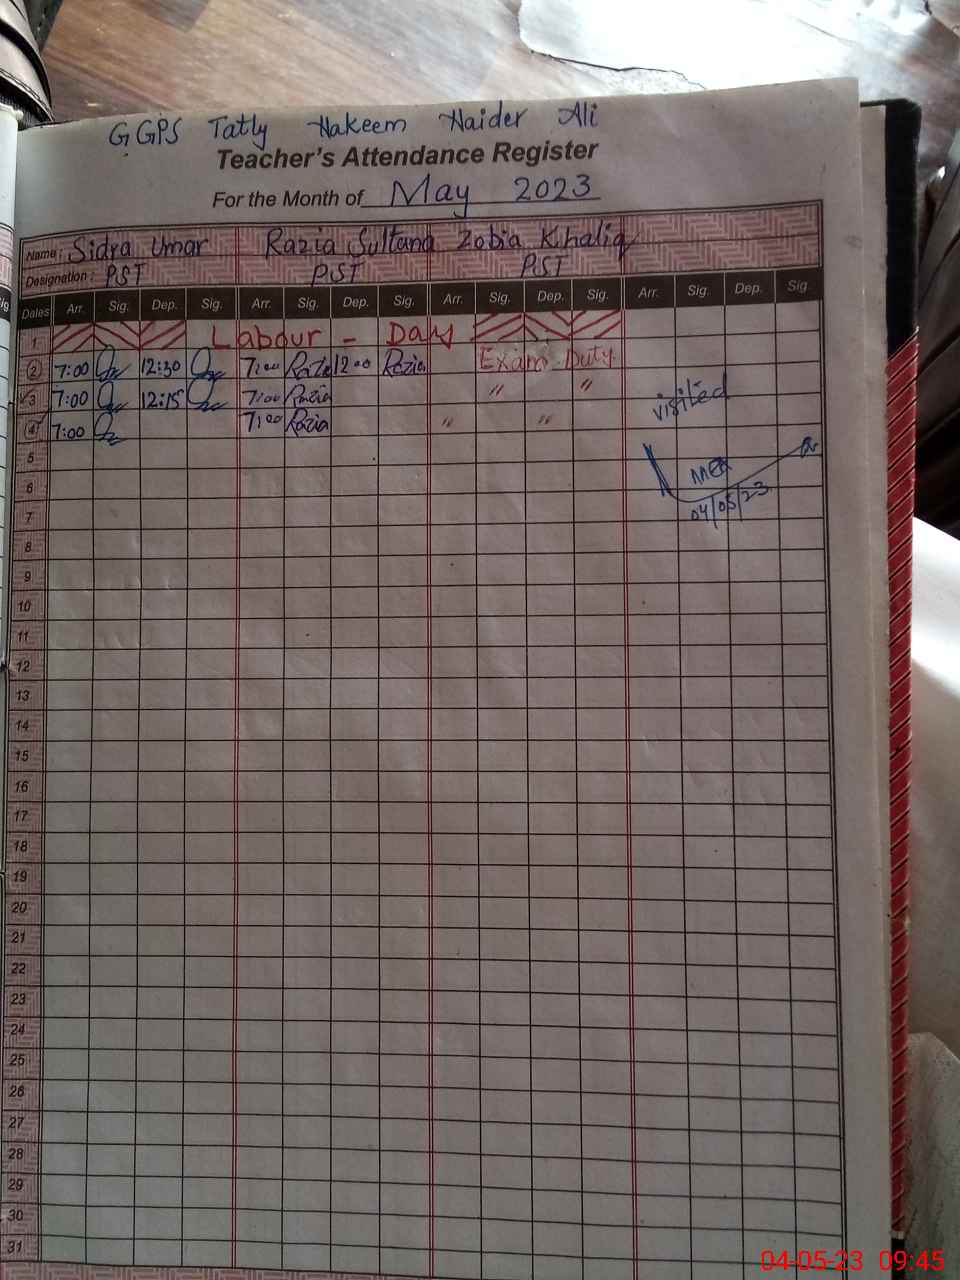 GGPS Tatly Hakeem Haider Ali
Teacher's Attendance Register
For the Month of May 2023
Name: Sidra Umar Razia Sultana Zobia Khaliq
Designation: PST PST PST
Dates Arr. Sig. Dep. Sig. Arr. Sig. Dep. Sig. Arr. Sig. Dep. Sig. Arr. Sig. Dep. Sig.
1 Labour - Day
2 7:00 12:30 7:00 Razia 12:00 Razia Exam Duty
3 7:00 12:15 7:00 Razia " " visited
4 7:00 7:00 Razia " "
5
6 MEA
7 04/05/23
8
9
10
11
12
13
14
15
16
17
18
19
20
21
22
23
24
25
26
27
28
29
30
31
04-05-23 09:45